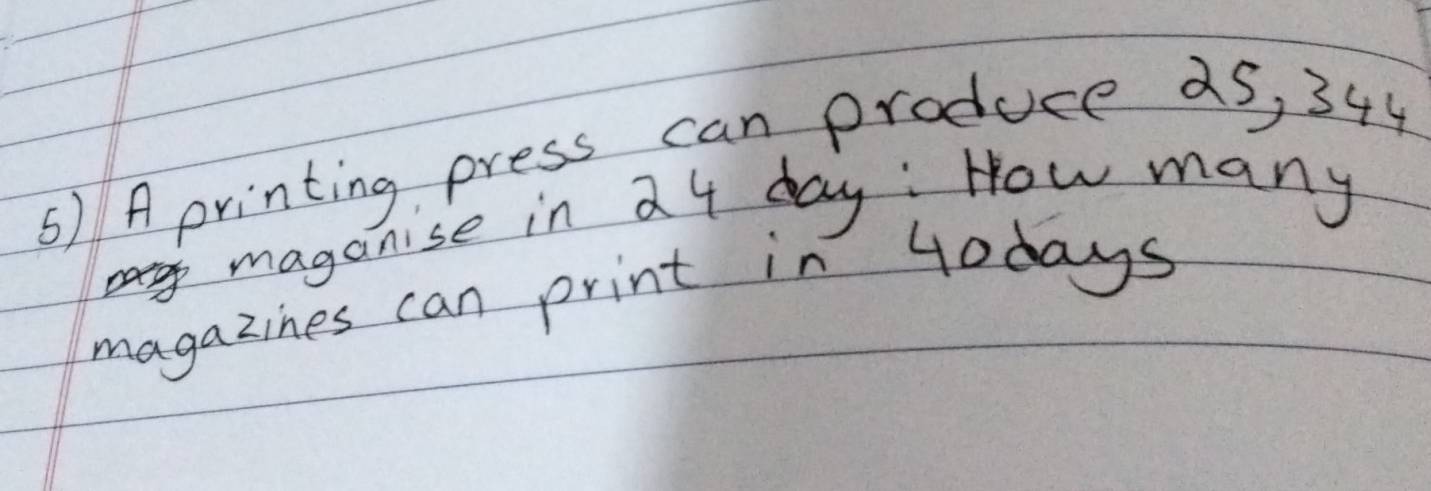 5) A printing press can produce 25,344
maganise in 24 day. How many
magazines can print in 40days